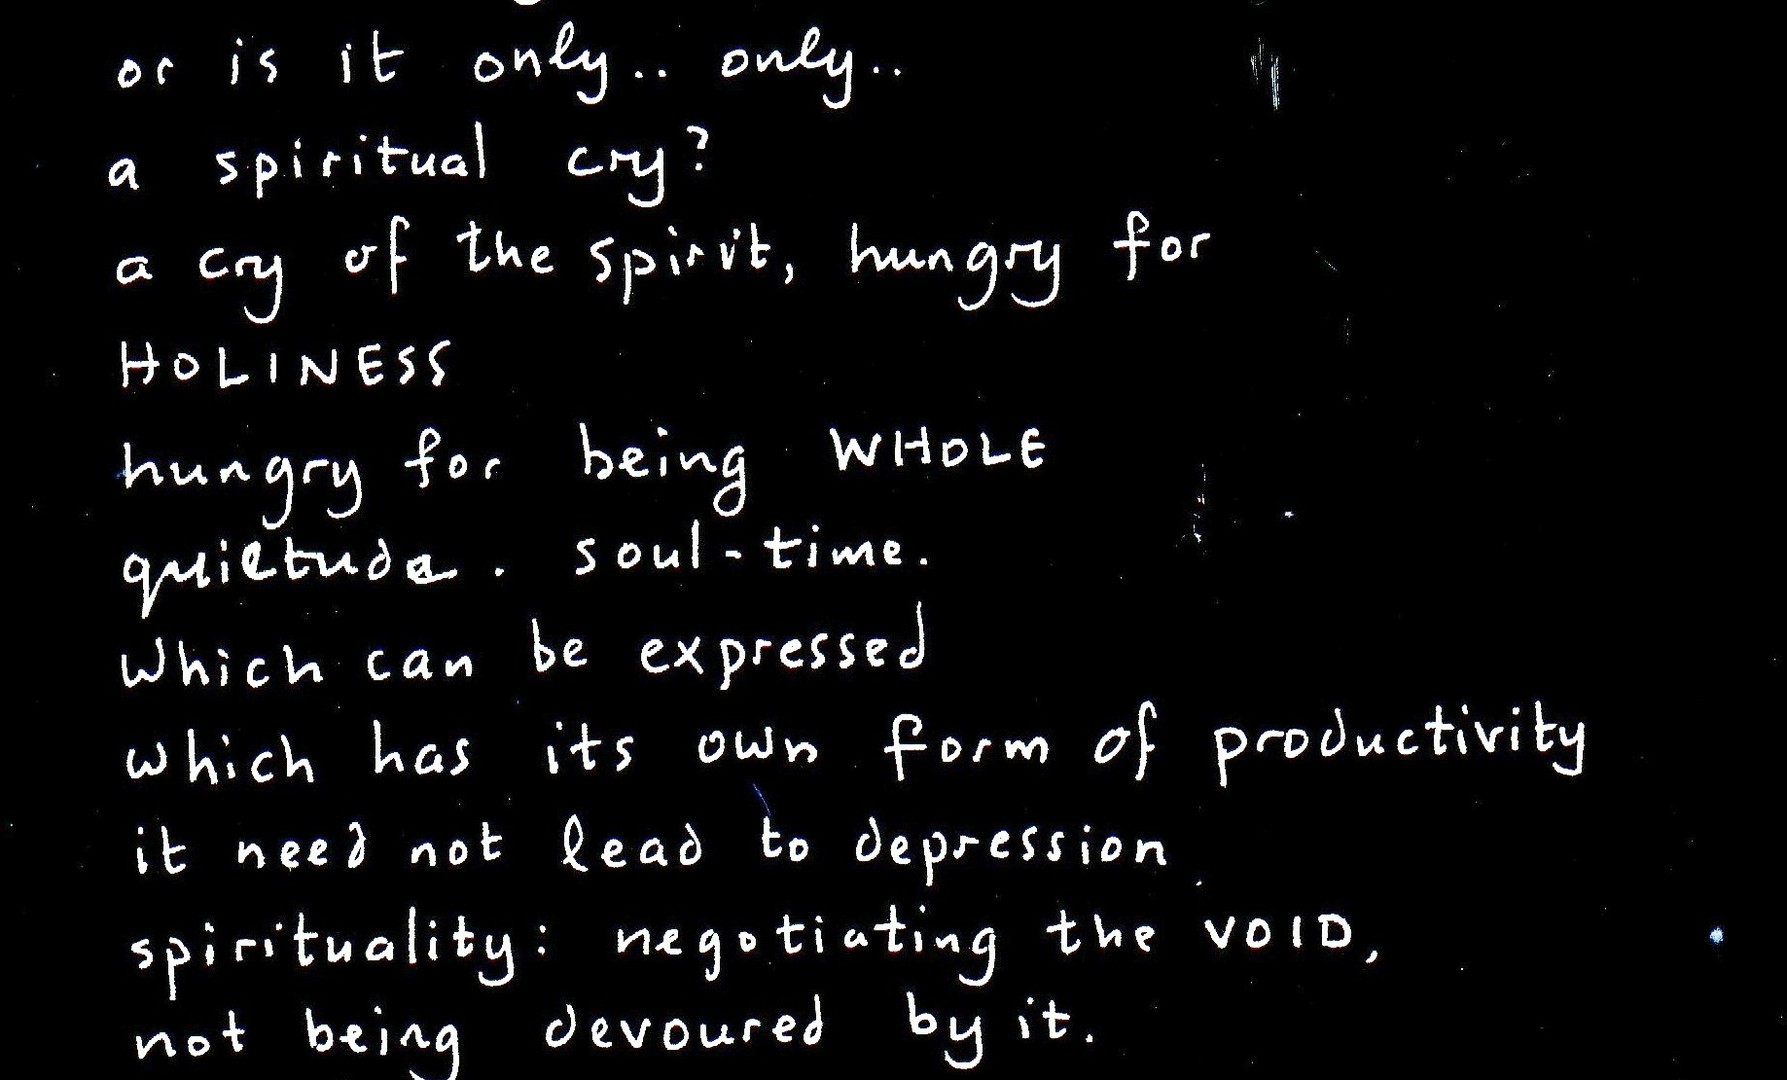 or is it only.. only..
a spiritual cry?
a cry of the spirit, hungry for
HOLINESS
hungry for being WHOLE
quietude. soul-time.
Which can be expressed
which has its own form of productivity
it need not lead to depression.
spirituality: negotiating the VOID,
not being devoured by it.